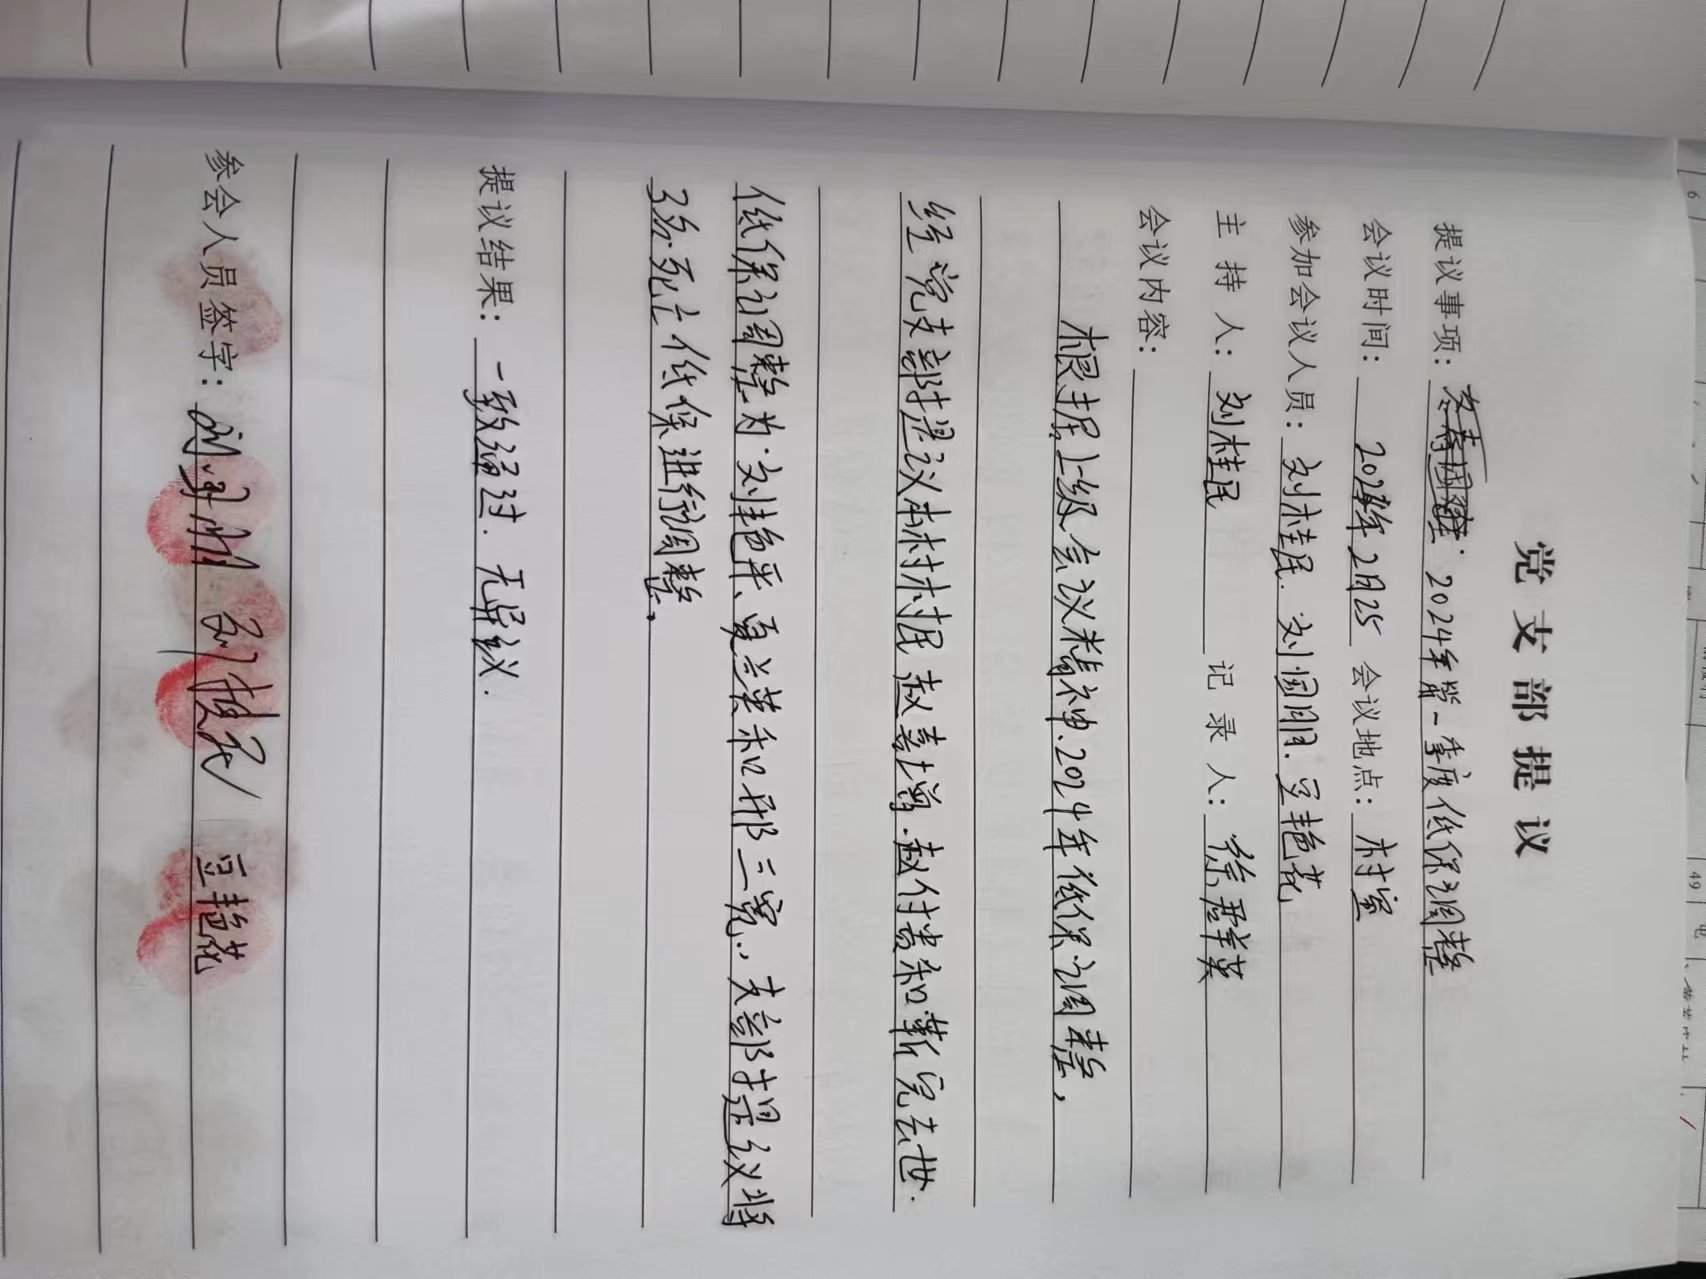 党支部提议
提议事项：2024年第一季度低保调整
会议时间：2024年2月25 会议地点：村室
参加会议人员：刘桂民.刘国明.豆艳花
主持人：刘桂民 记录人：徐群英
会议内容：
根据上级会议精神.2024年低保调整，
经党支部提议本村村民赵喜增.赵付贵和靳完去世.
低保调整为.刘艳平、夏兰英和邢三完，支部提议将
3名死亡低保进行调整。
提议结果：一致通过.无异议.
参会人员签字：刘国明 刘桂民 豆艳花